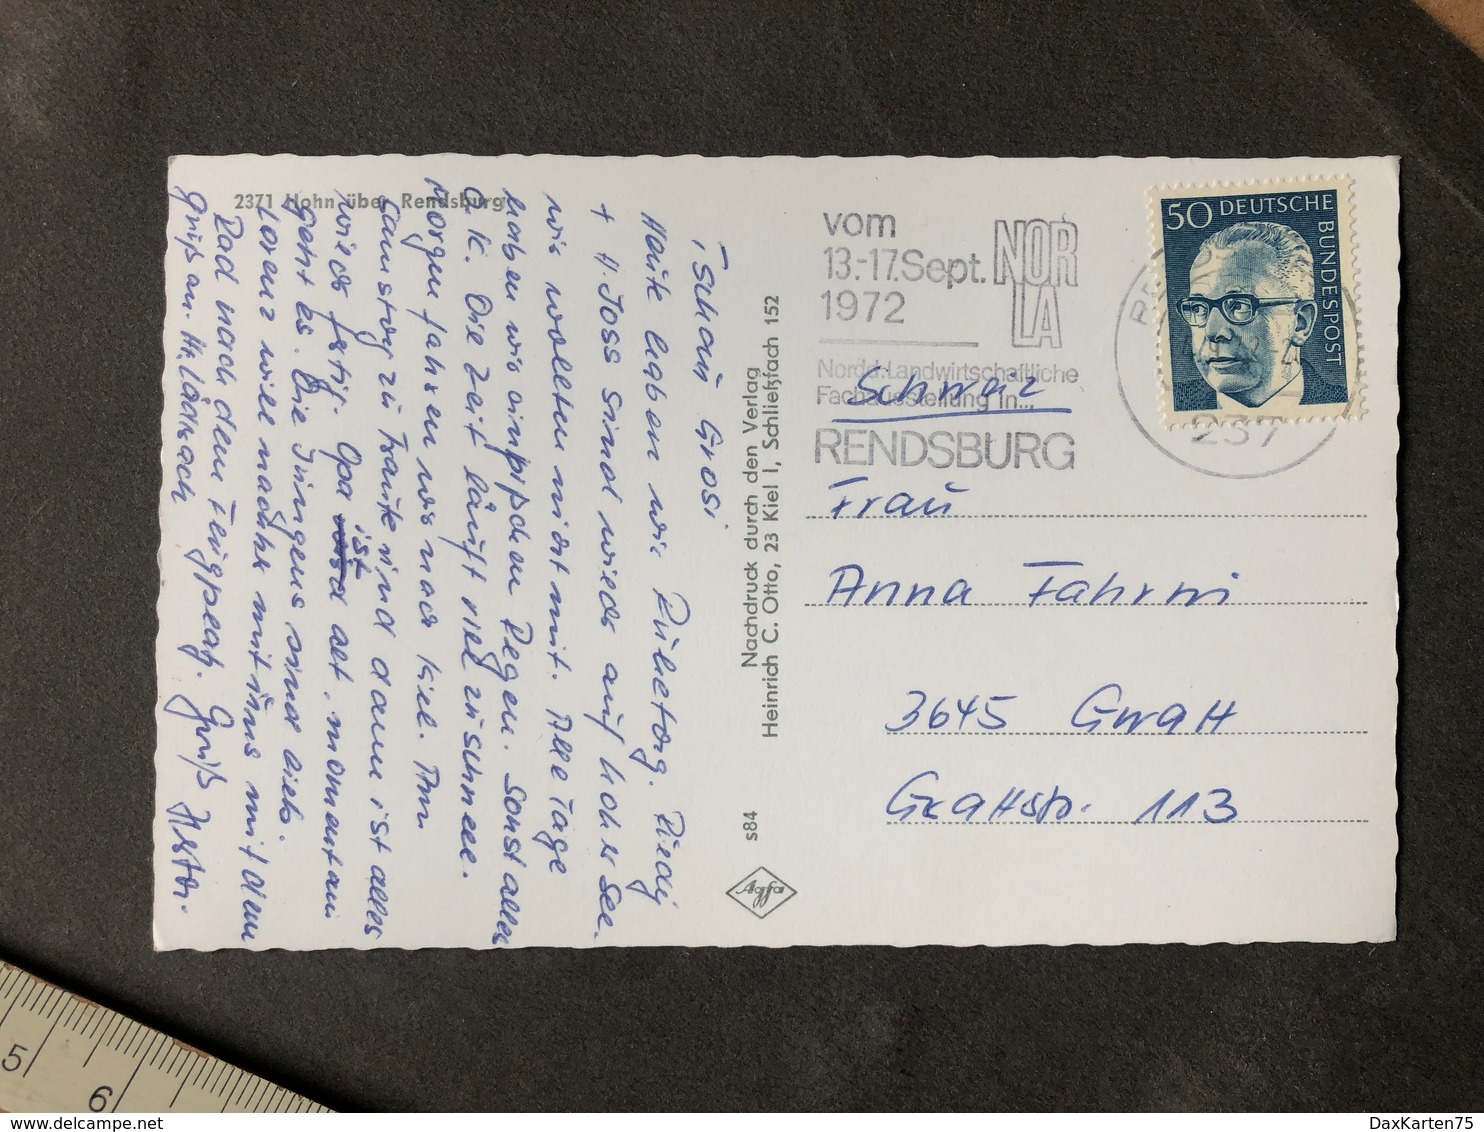 2371 Hohn über Rendsburg
Tschau Grosi
Heute haben wir Ruhetag. Ruedij
+ H. Joss sind wieder auf hoher See.
wir wollten nicht mit. Alle Tage
haben wir ein pipschen Regen. Sonst alles
o.k. Die Zeit läuft viel zu schnee.
Morgen fahren wir nach Kiel. Am
Samstag zu Traute und dann ist alles
wieder fertig. Opa ist alt. momentan
geht es. Die Jungens sind lieb.
Lorenz will nachher mit uns mit dem
Rad nach dem Flugplatz. Gruß
Gruß an. Hr. Lädrach
Nachdruck durch den Verlag
Heinrich C. Otto, 23 Kiel 1, Schließfach 152
s84
Agfa
vom
13.-17. Sept.
1972
NOR
LA
Nordd. Landwirtschaftliche
Fachausstellung in...
RENDSBURG
237
50 DEUTSCHE
BUNDESPOST
Schweiz
Frau
Anna Fahrni
3645 Gwatt
Gwattstr. 113
5
6
DaxKarten75